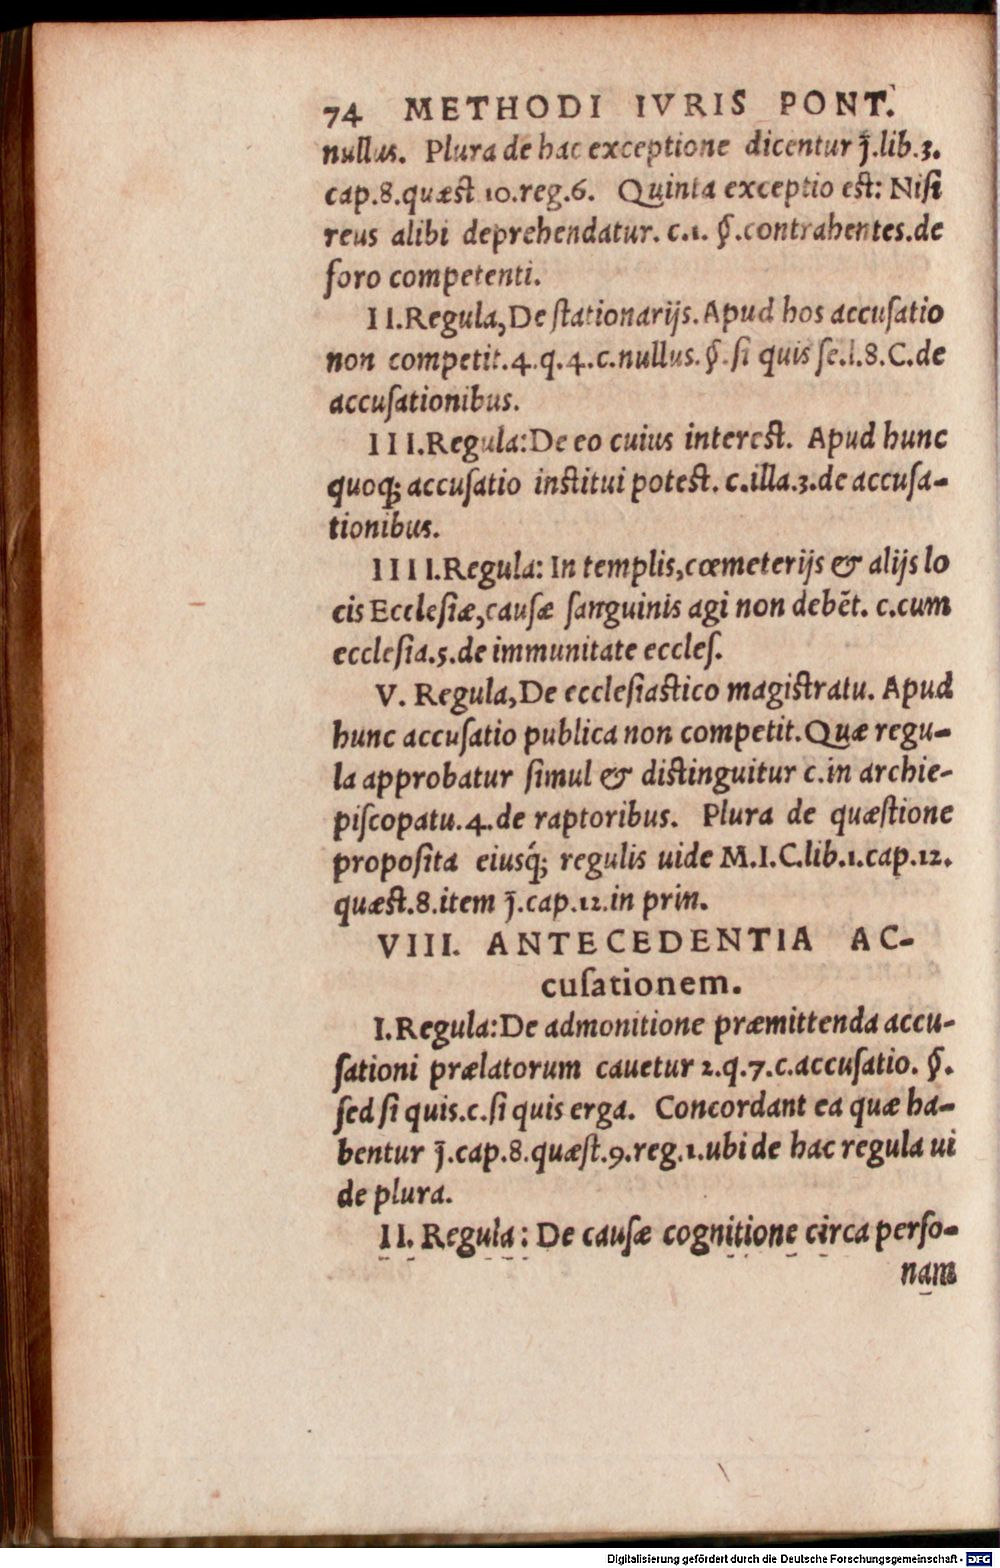 74 METHODI IVRIS PONT.
nullus. Plura de hac exceptione dicentur j̄.lib.3.
cap.8.quæst 10.reg.6. Quinta exceptio est: Nisi
reus alibi deprehendatur. c.1. §.contrahentes.de
foro competenti.
II.Regula,De stationarijs.Apud hos accusatio
non competit.4.q.4.c.nullus.§.si quis se.l.8.C.de
accusationibus.
III.Regula:De eo cuius interest. Apud hunc
quoq; accusatio institui potest. c.illa.3.de accusa-
tionibus.
IIII.Regula: In templis,cœmeterijs & alijs lo
cis Ecclesiæ,causæ sanguinis agi non debēt. c.cum
ecclesia.5.de immunitate eccles.
V. Regula,De ecclesiastico magistratu. Apud
hunc accusatio publica non competit.Quæ regu-
la approbatur simul & distinguitur c.in archie-
piscopatu.4.de raptoribus. Plura de quæstione
proposita eiusq́; regulis uide M.I.C.lib.1.cap.12.
quæst.8.item j̄.cap.12.in prin.
VIII. ANTECEDENTIA AC-
cusationem.
I.Regula:De admonitione præmittenda accu-
sationi prælatorum cauetur 2.q.7.c.accusatio. §.
sed si quis.c.si quis erga. Concordant ea quæ ha-
bentur j̄.cap.8.quæst.9.reg.1.ubi de hac regula ui
de plura.
II. Regula: De causæ cognitione circa perso-
nam
Digitalisierung gefördert durch die Deutsche Forschungsgemeinschaft - DFG